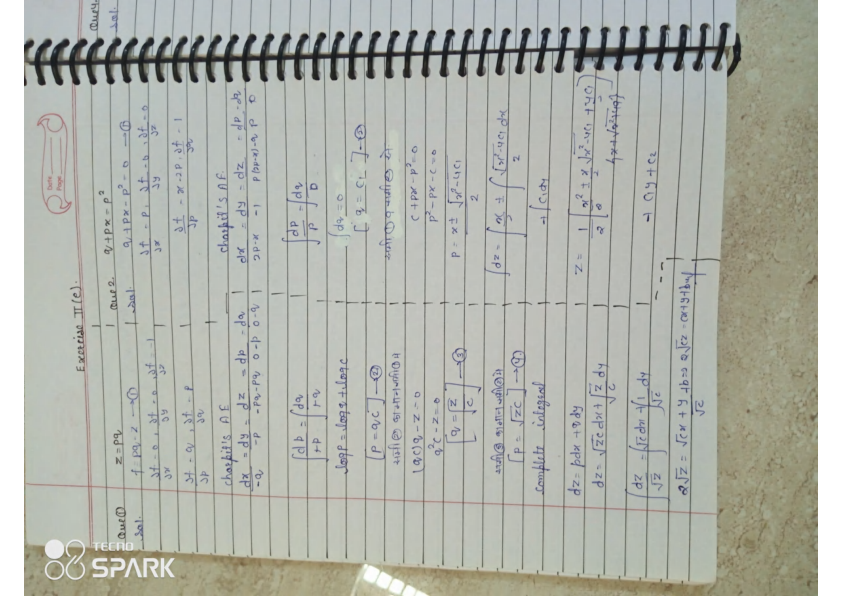 Exercise II(c).
Que ①
z = pq
Sol.
f = pq - z → ①
∂f/∂x = 0, ∂f/∂y = 0, ∂f/∂z = -1
∂f/∂p = q, ∂f/∂q = p
charpit's A E
dx/-q = dy/-p = dz/-pq-pq = dp/0-p = dq/0-q
∫dp/+p = ∫dq/+q
log p = log q + log c
[p = qc] → ②
(qc)q - z = 0
q²c - z = 0
[q = √z/c] → ③
[p = √zc] → ④
Complete integral
dz = pdx + qdy
dz = √zc dx + √z/c dy
∫dz/√z = ∫√c dx + ∫1/√c dy
2√z = √c x + y/√c + b ⇒ 2√cz = cx + y + b√c
Que 2.
q + px = p²
Sol.
q + px - p² = 0 → ①
∂f/∂x = p, ∂f/∂y = 0, ∂f/∂z = 0
∂f/∂p = x - 2p, ∂f/∂q = 1
charpit's A E
dx/2p-x = dy/-1 = dz/p(2p-x)-q = dp/p = dq/0
∫dp/p = ∫dq/0
∫dq = 0
[q = c₁] → ②
c + px - p² = 0
p² - px - c = 0
p = x ± √x²-4c₁/2
∫dz = ∫x/2 ± ∫√x²-4c₁/2 dx
+ ∫c₁dy
→ c₁y + c₂
Date
Page
Que 4.
Sol.
TECNO
SPARK